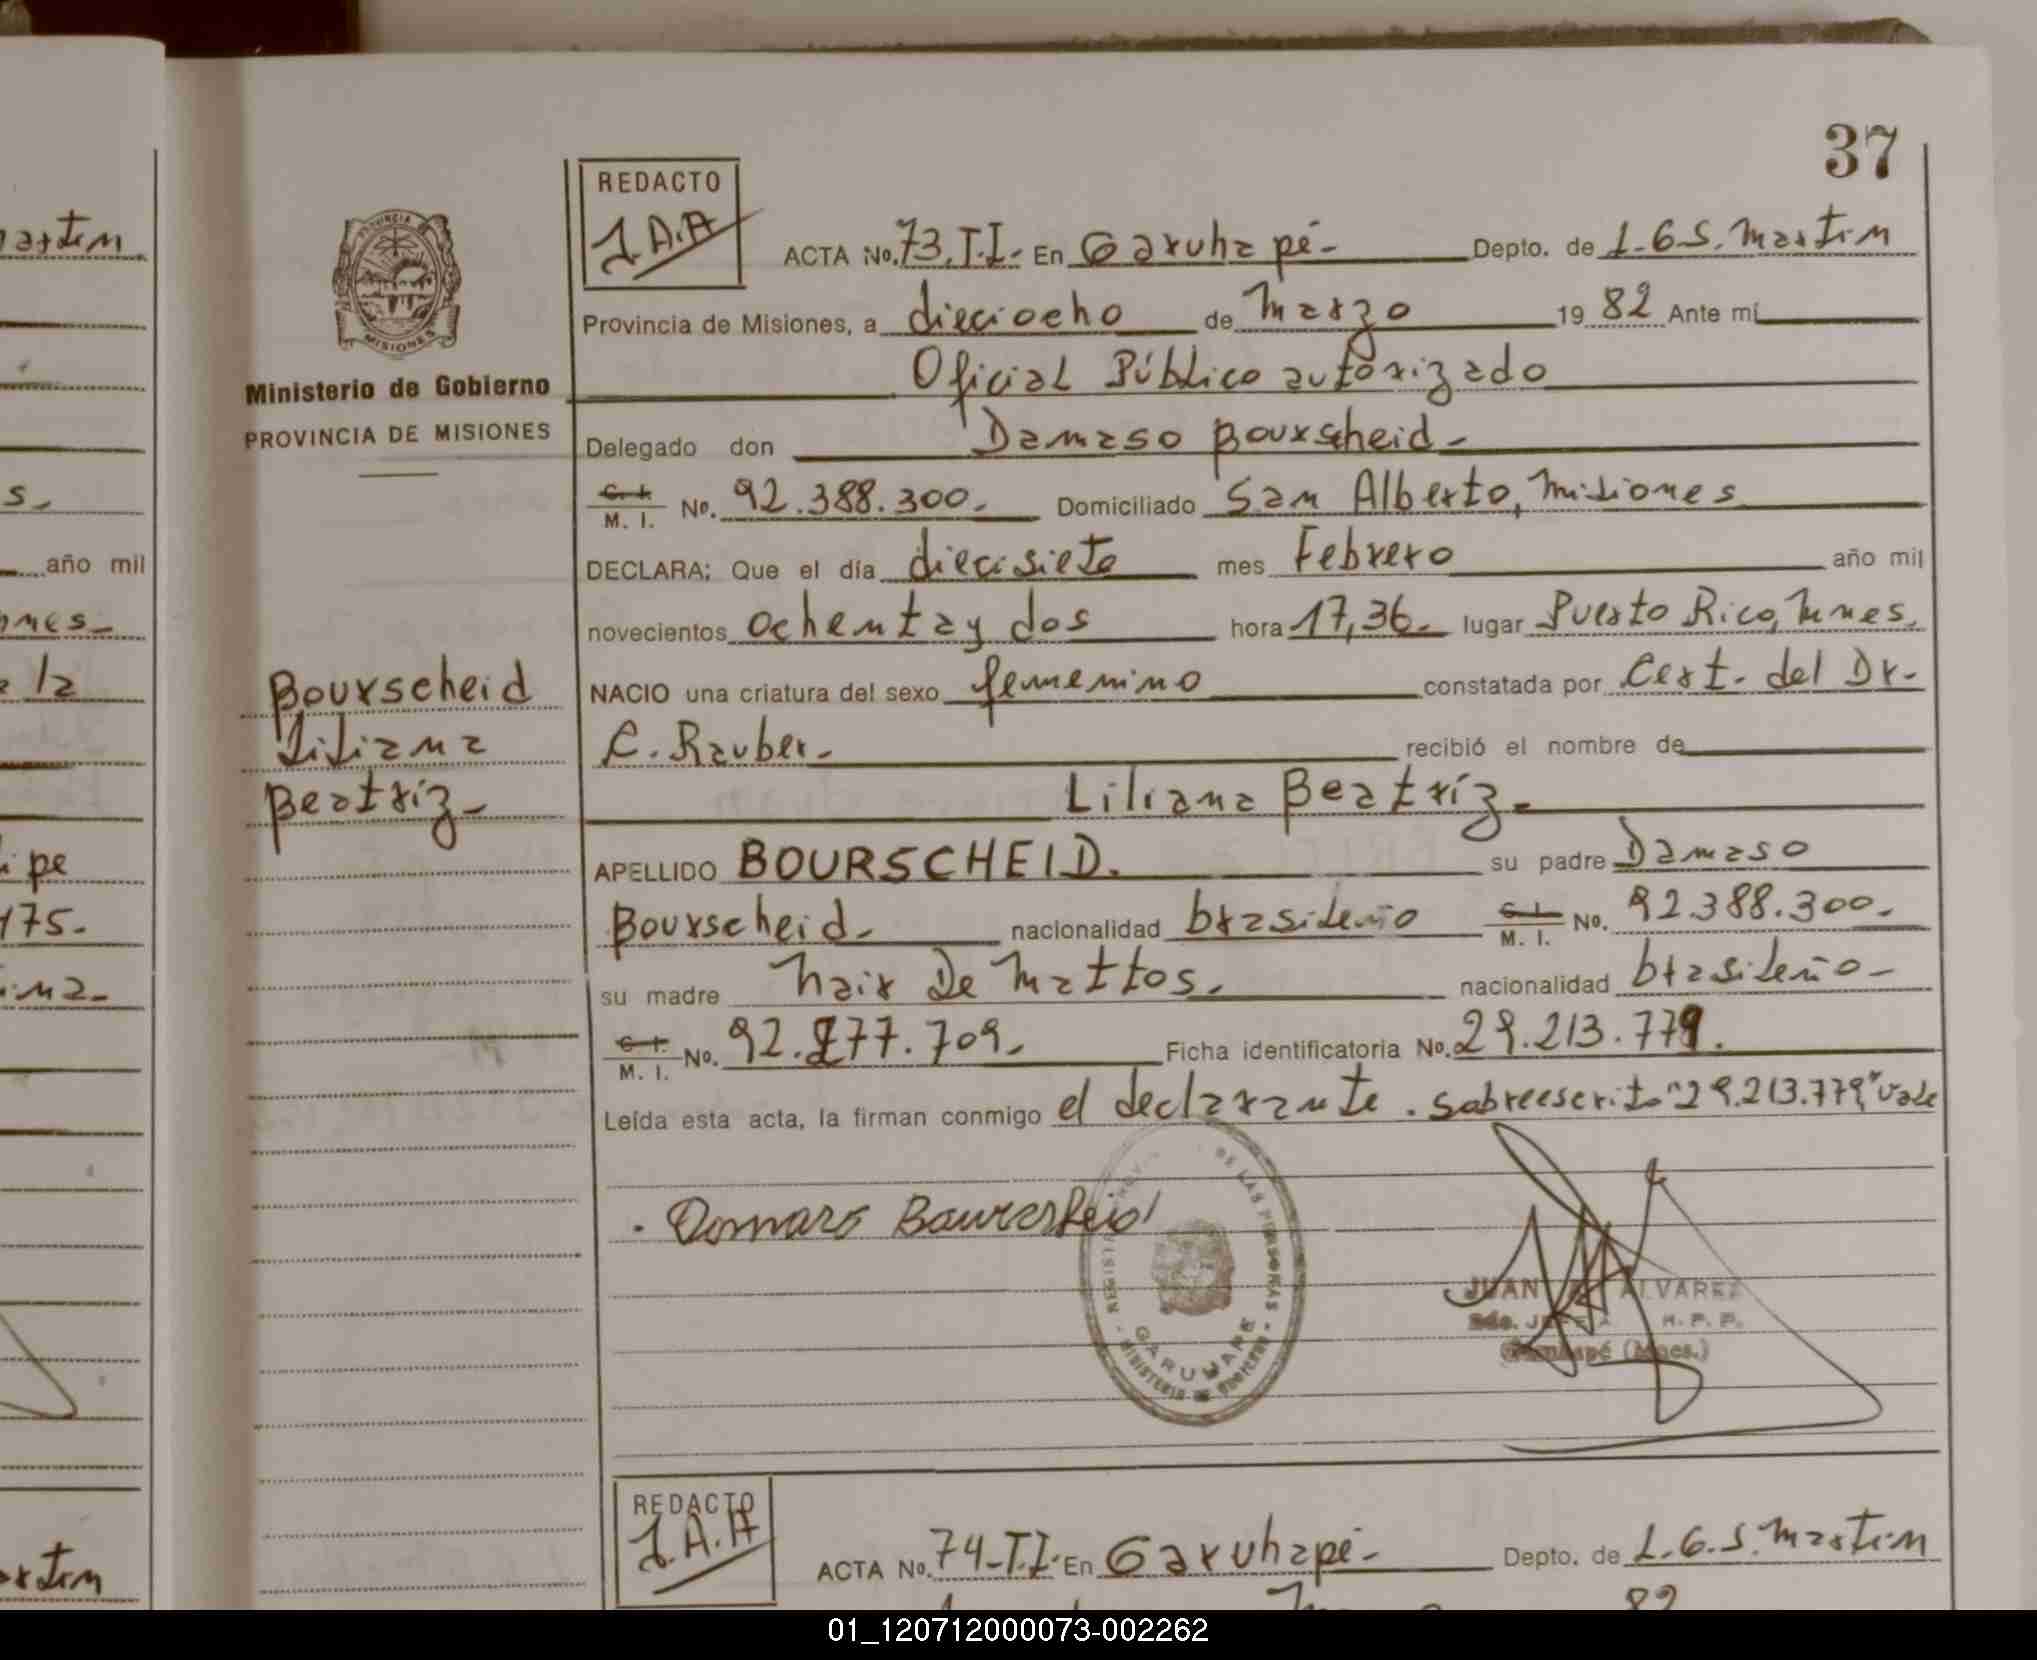 37
REDACTO
J.A.A
ACTA No. 73.T.I.- En Garuhapé- Depto. de L.G.S. Martin
Provincia de Misiones, a dieciocho de Marzo 19 82 Ante mí
Oficial Público autorizado
PROVINCIA
MISIONES
Ministerio de Gobierno
PROVINCIA DE MISIONES
Delegado don Damaso Bourscheid-
C. I. M. I. No. 92.388.300.- Domiciliado San Alberto, Misiones
DECLARA: Que el día diecisiete mes Febrero año mil
novecientos ochenta y dos hora 17,36.- lugar Puerto Rico, Mnes.
Bourscheid
Liliana
Beatríz-
NACIO una criatura del sexo femenino constatada por Cert. del Dr.
C. Rauber.- recibió el nombre de
Liliana Beatríz.-
APELLIDO BOURSCHEID. su padre Damaso
Bourscheid.- nacionalidad brasileño C. I. M. I. No. 92.388.300.-
su madre Nair De Mattos.- nacionalidad brasileño-
C. I. M. I. No. 92.277.709.- Ficha identificatoria No. 29.213.779.
Leída esta acta, la firman conmigo el declarante. sobreescrito "29.213.779" vale
Damaso Bourscheid
DE LAS PERSONAS
GARUHAPE
JUAN ALVAREZ
Garuhapé (Mnes.)
REDACTO
J.A.A
ACTA No. 74-T.I.- En Garuhapé- Depto. de L.G.S. Martin
82
artin
s.-
año mil
ones-
la
ipe
175.-
ina-
artin
01_120712000073-002262